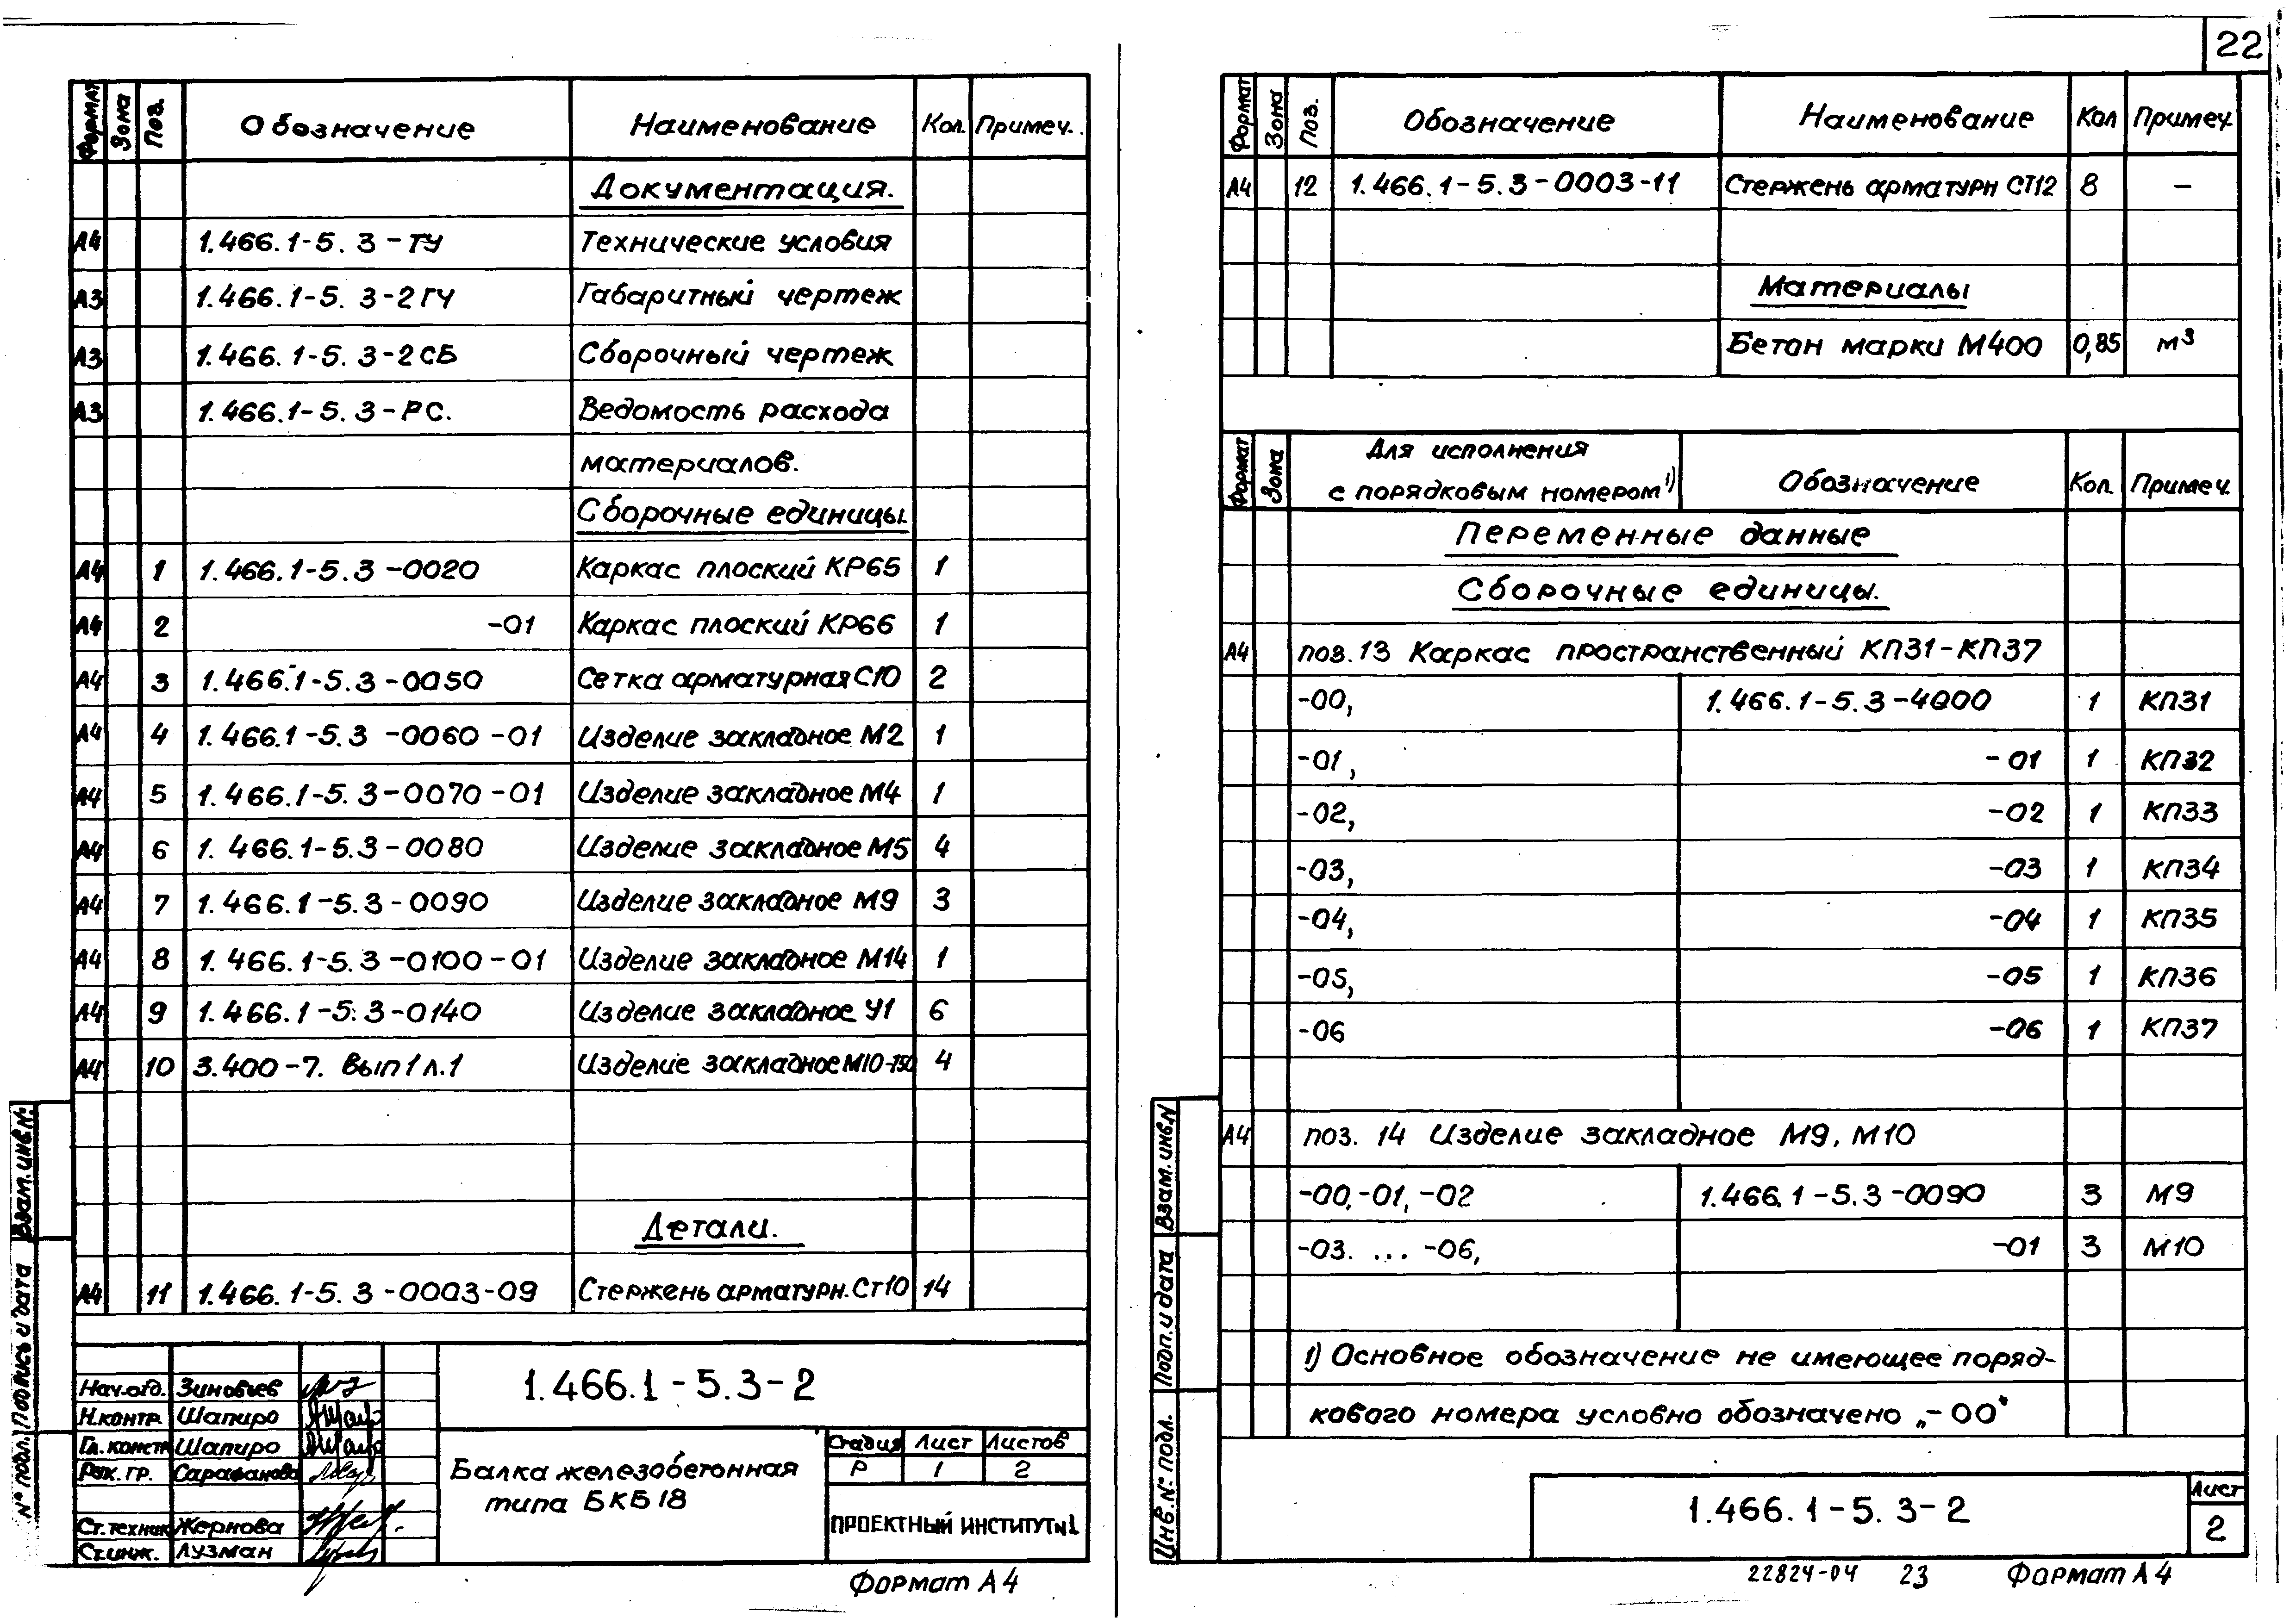 22
Формат Зона Поз. Обозначение Наименование Кол. Примеч.
Документация.
А4 1.466.1-5.3-ТУ Технические условия
А3 1.466.1-5.3-2ГЧ Габаритный чертеж
А3 1.466.1-5.3-2СБ Сборочный чертеж
А3 1.466.1-5.3-РС. Ведомость расхода
материалов.
Сборочные единицы.
А4 1 1.466.1-5.3-0020 Каркас плоский КР65 1
А4 2 -01 Каркас плоский КР66 1
А4 3 1.466.1-5.3-0050 Сетка арматурная С10 2
А4 4 1.466.1-5.3-0060-01 Изделие закладное М2 1
А4 5 1.466.1-5.3-0070-01 Изделие закладное М4 1
А4 6 1.466.1-5.3-0080 Изделие закладное М5 4
А4 7 1.466.1-5.3-0090 Изделие закладное М9 3
А4 8 1.466.1-5.3-0100-01 Изделие закладное М14 1
А4 9 1.466.1-5.3-0140 Изделие закладное У1 6
А4 10 3.400-7. Вып1 л.1 Изделие закладное М10-150 4
Детали.
А4 11 1.466.1-5.3-0003-09 Стержень арматурн. Ст10 14
Взам. инв.№
Подпись и дата
№ подл.
Нач.отд. Зиновьев
Н.контр. Шапиро
Гл. констр Шапиро
Рук. гр. Сарафанова
Ст. техник Жернова
Ст. инж. Лузман
1.466.1-5.3-2
Балка железобетонная
типа БКБ18
Стадия Лист Листов
Р 1 2
ПРОЕКТНЫЙ ИНСТИТУТ №1
Формат А4
Формат Зона Поз. Обозначение Наименование Кол Примеч.
А4 12 1.466.1-5.3-0003-11 Стержень арматурн СТ12 8 –
Материалы
Бетон марки М400 0,85 м³
Формат Зона Для исполнения
с порядковым номером¹⁾ Обозначение Кол. Примеч.
Переменные данные
Сборочные единицы.
А4 поз.13 Каркас пространственный КП31-КП37
-00, 1.466.1-5.3-4000 1 КП31
-01, -01 1 КП32
-02, -02 1 КП33
-03, -03 1 КП34
-04, -04 1 КП35
-05, -05 1 КП36
-06 -06 1 КП37
А4 поз. 14 Изделие закладное М9, М10
-00,-01,-02 1.466.1-5.3-0090 3 М9
-03. ... -06, -01 3 М10
1) Основное обозначение не имеющее поряд-
кового номера условно обозначено „-00"
Взам. инв.N
Подп. и дата
Инв. № подл.
1.466.1-5.3-2
Лист
2
22824-04 23 Формат А4